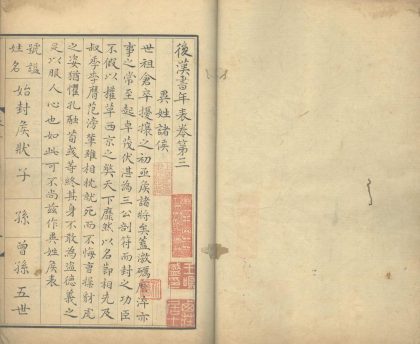 後漢書年表卷第三
異姓諸侯
世祖倉卒擾攘之初亟侯諸將矣蓋激礪磨淬亦
事之常至起卓茂伏湛為三公剖符而封之功臣
不假以權草西京之獘天下靡然以名節相先及
叔季李膺范滂軰雖相枕就死而不悔曹操豺虎
之姿猶懼孔融荀彧等終其身不敢為道德義之
足以服人心也如此可不尚哉作異姓侯表
號諡
姓名
始封侯狀
子
孫
曾孫
五世